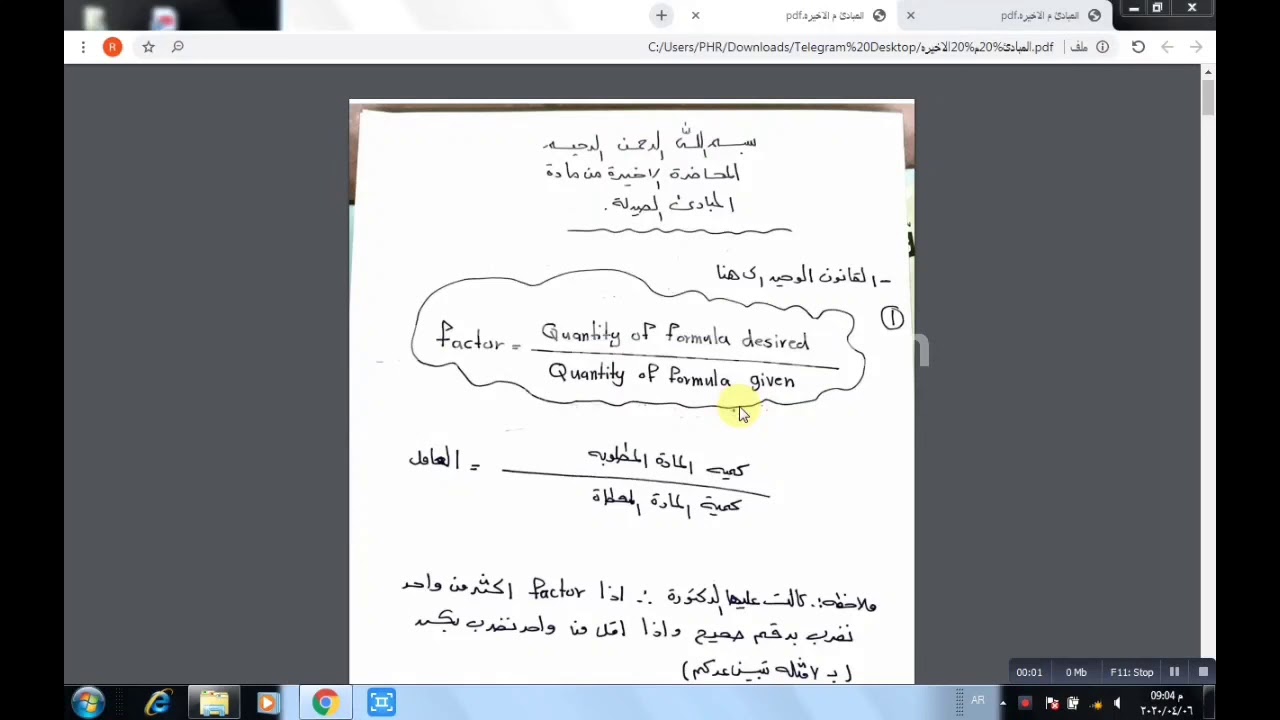 المبادئ م الاخيره.pdf
المبادئ م الاخيره.pdf
ملف
C:/Users/PHR/Downloads/Telegram%20Desktop/المبادئ%20م%20الاخيره.pdf
R
بسم الله الرحمن الرحيم
المحاضرة الاخيرة من مادة
المبادئ الصيدلة.
- القانون الوحيد الي هنا
①
factor = Quantity of formula desired
Quantity of formula given
العامل = كميه المادة المطلوبه
كمية المادة المعطاة
ملاحظه:. كالت عليها الدكتورة ∴ اذا factor اكثر من واحد
نضرب برقم صحيح واذا اقل من واحد نضرب بكسر
(بـ الامثله تبين عدكم)
00:01
0 Mb
F11: Stop
AR
09:04 م
٢٠٢٠/٠٤/٠٦